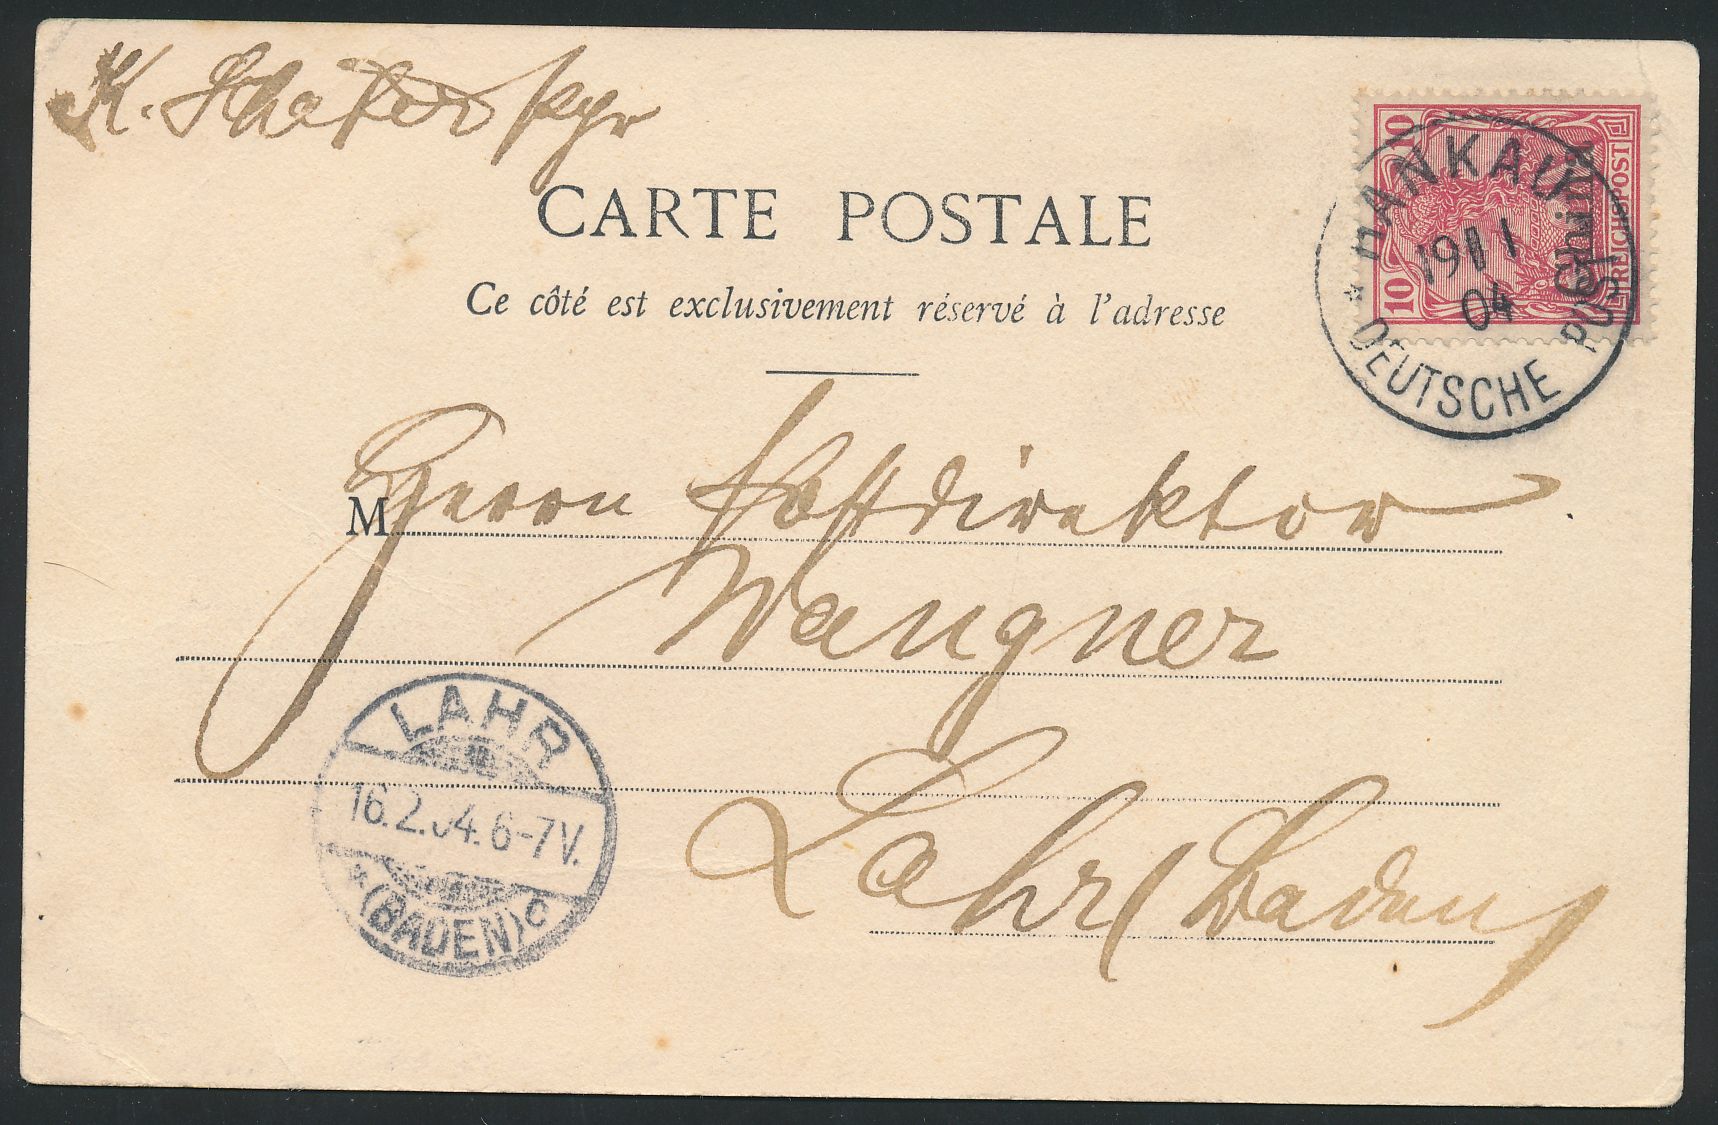 K. Schäfer
CARTE POSTALE
Ce côté est exclusivement réservé à l'adresse
10 10
REICHSPOST
China
HANKAU
19/1
04
* DEUTSCHE POST
M
Herrn Postdirektor
Wangner
Lahr (Baden)
LAHR
16.2.04.6-7V.
* (BADEN) c